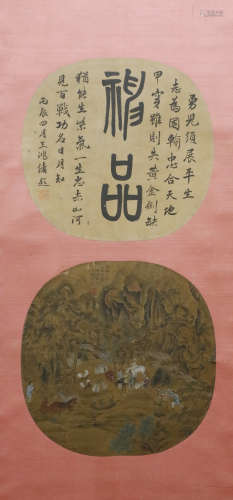 神品
男兒須展平生
志為國輸忠合天地
甲穿雖則失黃金劍缺
猶能生紫氣一生忠赤山河
見百戰功名日月知
丙辰四月王鴻緒題